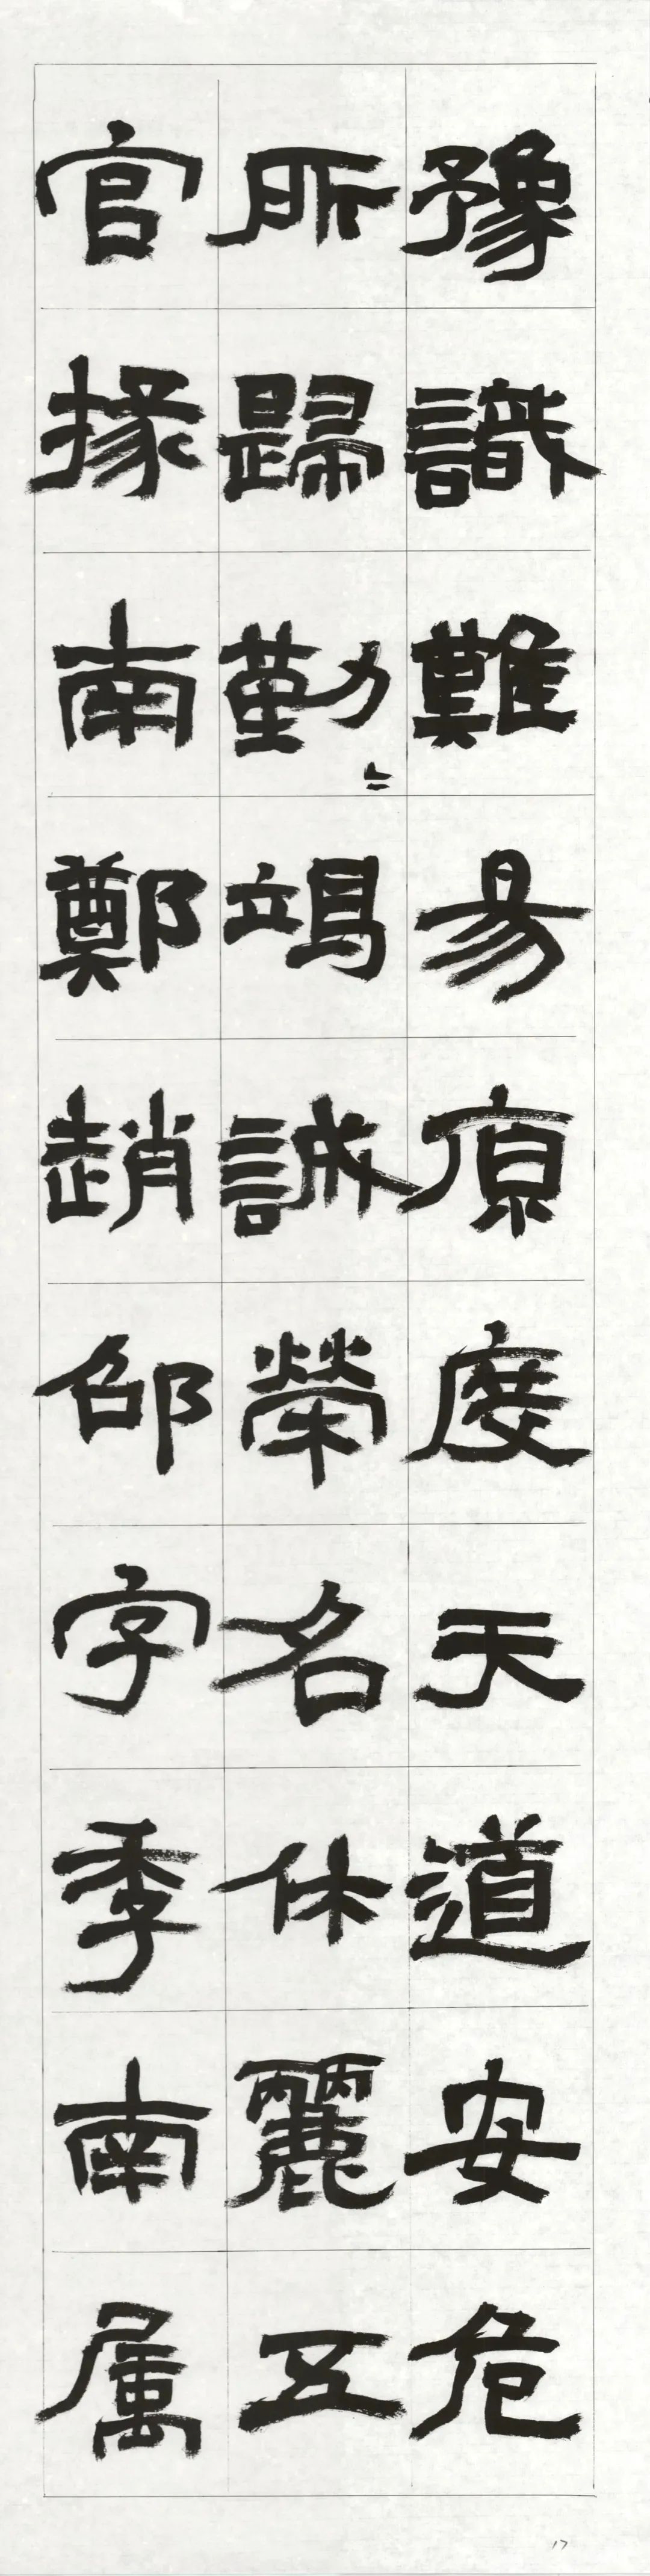 豫識難易原度天道安危
所歸勤〻竭誠榮名休麗五
官掾南鄭趙邵字季南属
17